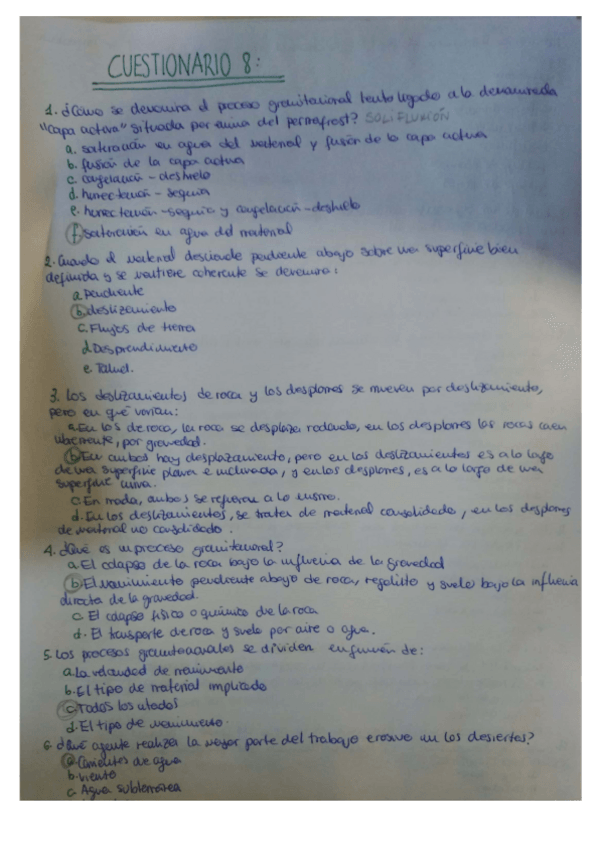 CUESTIONARIO 8:
1. ¿Cómo se denomina el proceso gravitacional lento ligado a la denominada
"capa activa" situada por encima del permafrost? SOLIFLUXIÓN
a. saturación en agua del material y fusión de la capa activa
b. fusión de la capa activa
c. congelación - deshielo
d. humectación - sequía
e. humectación - sequía y congelación - deshielo
f. saturación en agua del material
2. Cuando el material desciende pendiente abajo sobre una superficie bien
definida y se mantiene coherente se denomina:
a. Pendiente
b. deslizamiento
c. Flujos de tierra
d. Desprendimiento
e. Talud.
3. Los deslizamientos de roca y los desplomes se mueven por deslizamiento,
pero en qué varían:
a. En los de roca, la roca se desplaza rodando, en los desplomes las rocas caen
libremente, por gravedad.
b. En ambos hay desplazamiento, pero en los deslizamientos es a lo largo
de una superficie plana e inclinada, y en los desplomes, es a lo largo de una
superficie curva.
c. En nada, ambos se refieren a lo mismo.
d. En los deslizamientos, se trata de material consolidado, en los desplomes
de material no consolidado.
4. ¿Qué es un proceso gravitacional?
a. El colapso de la roca bajo la influencia de la gravedad
b. El movimiento pendiente abajo de roca, regolito y suelo bajo la influencia
directa de la gravedad.
c. El colapso físico o químico de la roca
d. El transporte de roca y suelo por aire o agua.
5. Los procesos gravitacionales se dividen en función de:
a. La velocidad de movimiento
b. El tipo de material implicado
c. Todos los citados
d. El tipo de movimiento.
6. ¿Qué agente realiza la mayor parte del trabajo erosivo en los desiertos?
a. Corrientes de agua
b. viento
c. Agua subterránea